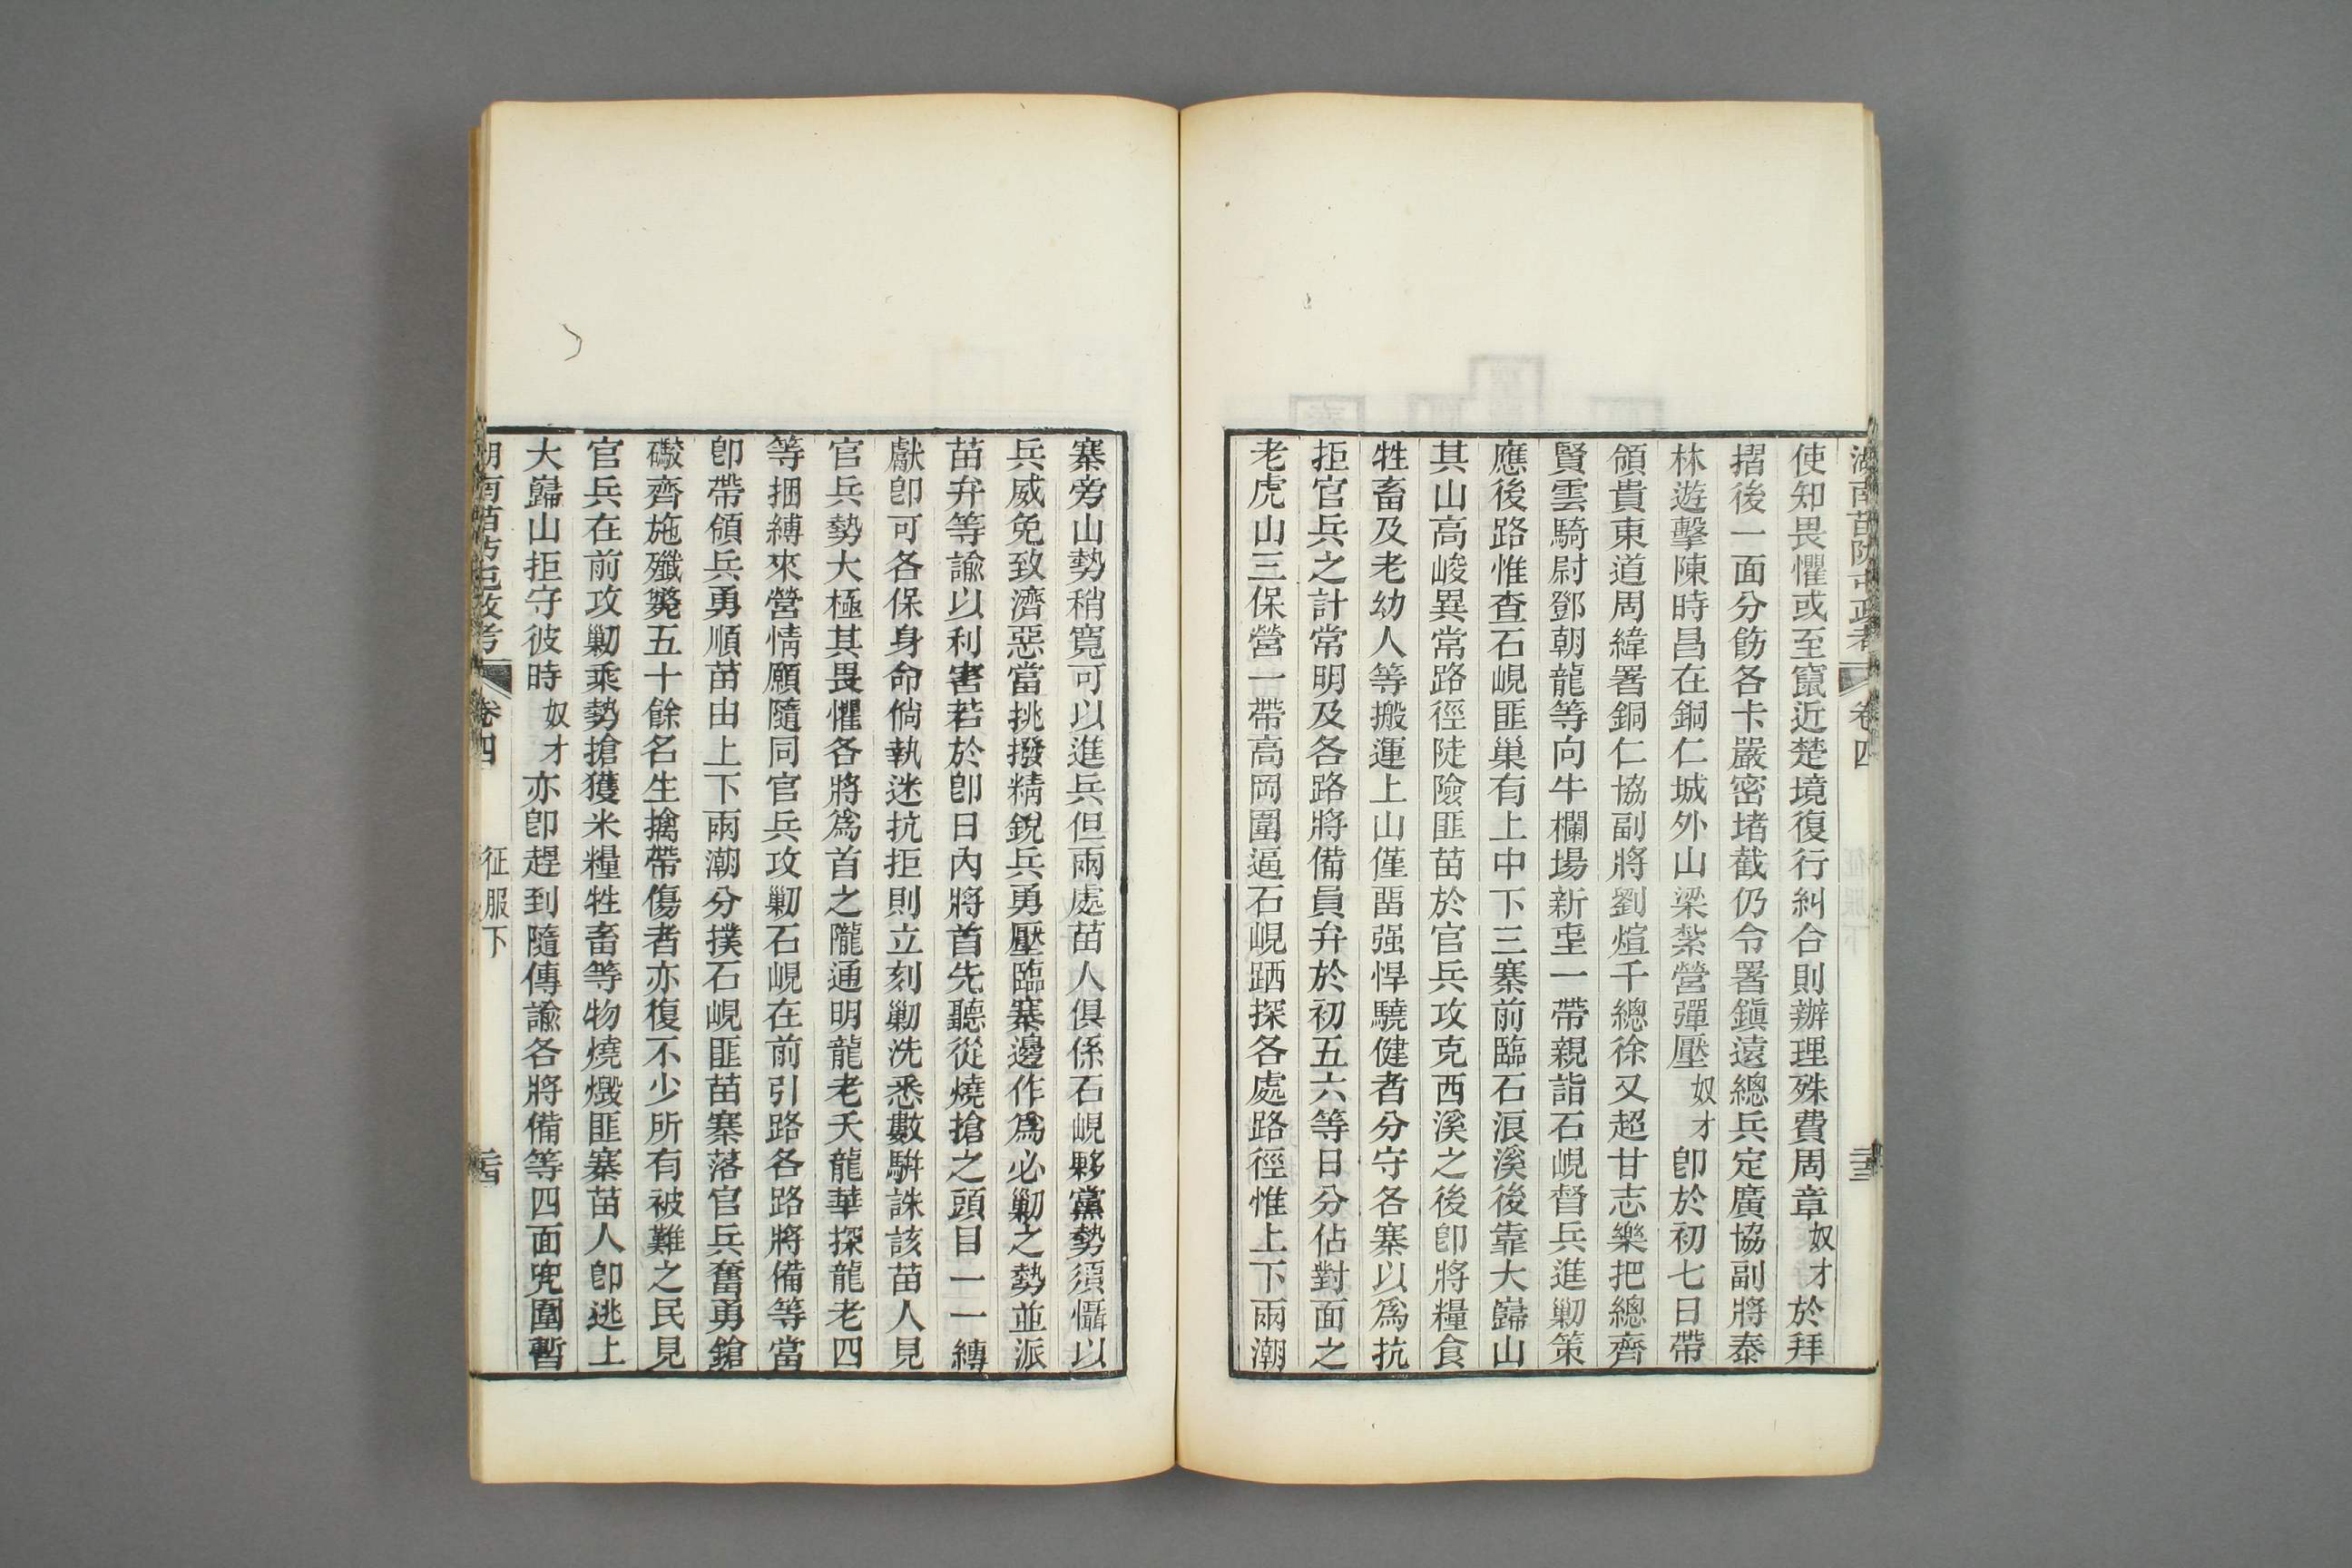 使知畏懼或至竄近楚境復行糾合則辦理殊費周章奴才於拜
摺後一面分飭各卡嚴密堵截仍令署鎭遠總兵定廣協副將泰
林遊擊陳時昌在銅仁城外山梁紮營彈壓奴才卽於初七日帶
領貴東道周緯署銅仁協副將劉煊千總徐又超甘志樂把總齊
賢雲騎尉鄧朝龍等向牛欄場新寨一帶親詣石峴督兵進勦策
應後路惟查石峴匪巢有上中下三寨前臨石浪溪後靠大巋山
其山高峻異常路徑陡險匪苗於官兵攻克西溪之後卽將糧食
牲畜及老幼人等搬運上山僅畱强悍驍健者分守各寨以爲抗
拒官兵之計常明及各路將備員弁於初五六等日分佔對面之
老虎山三保營一帶高岡圍逼石峴跴探各處路徑惟上下兩潮
寨旁山勢稍寬可以進兵但兩處苗人俱係石峴夥黨勢須懾以
兵威免致濟惡當挑撥精銳兵勇壓臨寨邊作爲必勦之勢並派
苗弁等諭以利害若於卽日內將首先聽從燒搶之頭目一一縛
獻卽可各保身命倘執迷抗拒則立刻勦洗悉數駢誅該苗人見
官兵勢大極其畏懼各將爲首之隴通明龍老夭龍華探龍老四
等捆縛來營情願隨同官兵攻勦石峴在前引路各路將備等當
卽帶領兵勇順苗由上下兩潮分撲石峴匪苗寨落官兵奮勇鎗
礮齊施殲斃五十餘名生擒帶傷者亦復不少所有被難之民見
官兵在前攻勦乘勢搶獲米糧牲畜等物燒燬匪寨苗人卽逃上
大巋山拒守彼時奴才亦卽趕到隨傳諭各將備等四面兜圍暫
湖南苗防屯政考 卷四 征服下 二十四